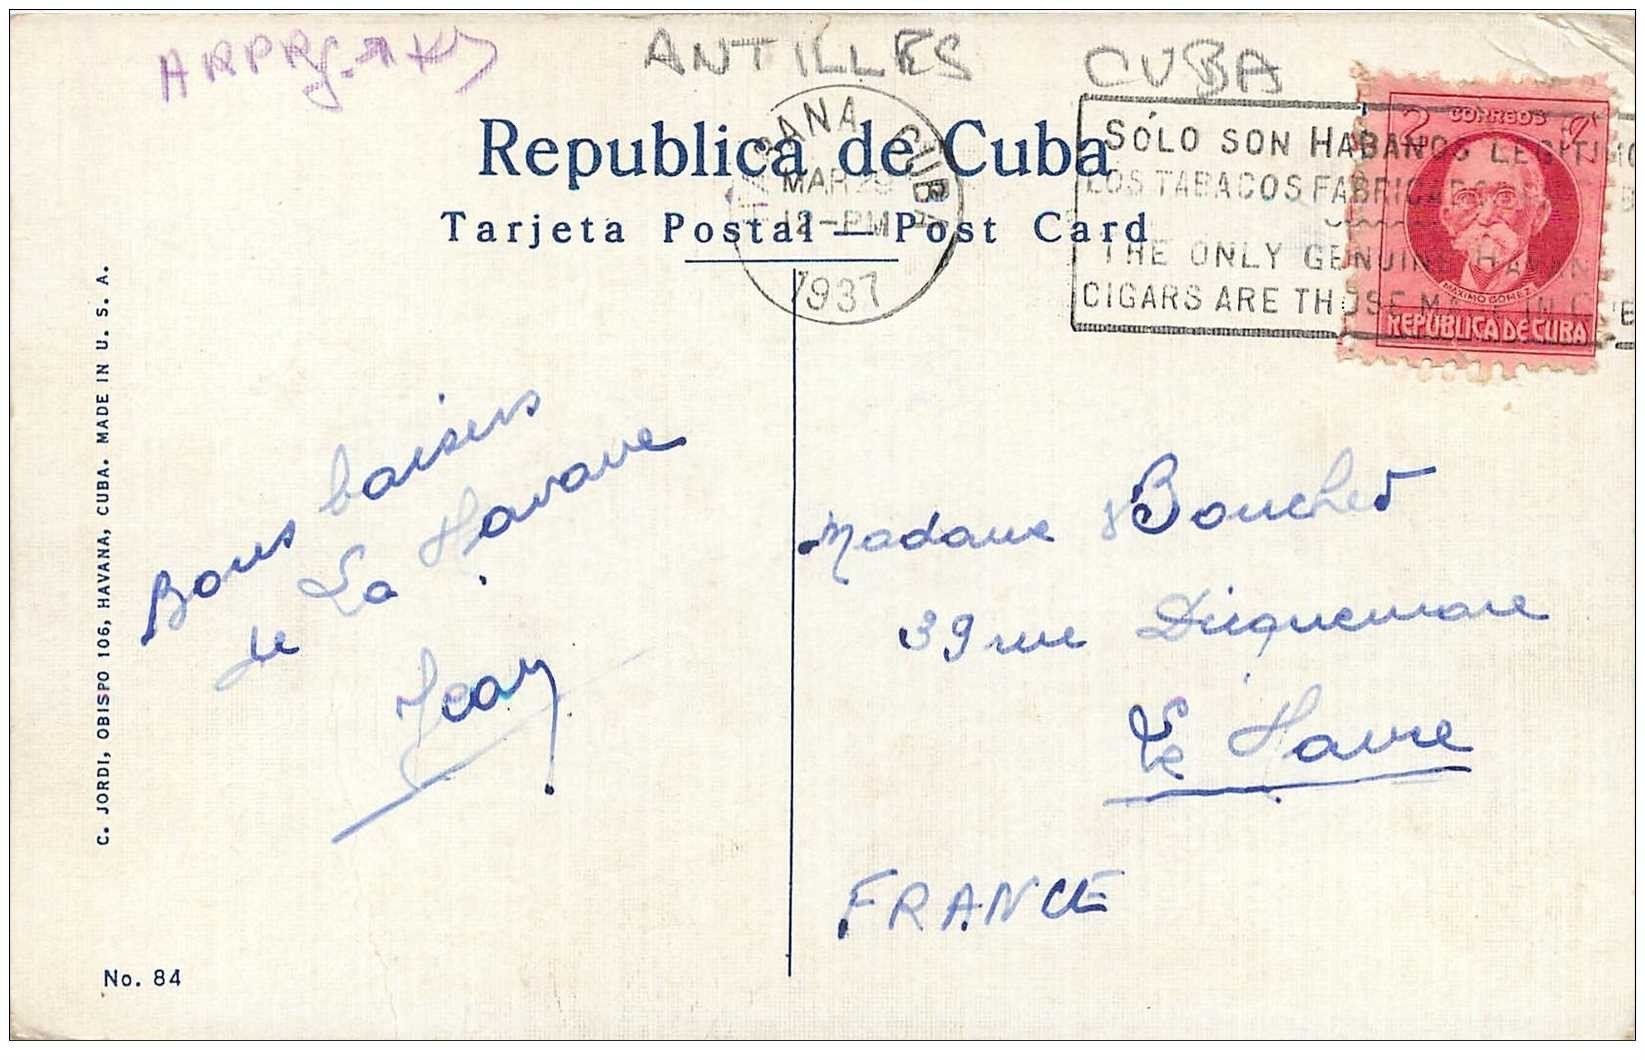 ANTILLES CUBA
Republica de Cuba
Tarjeta Postal — Post Card
HABANA CUBA
MAR 29
12-PM
1937
SÓLO SON HABANOS LEGITIMO
LOS TABACOS FABRICADOS
THE ONLY GENUINE HAVAN
CIGARS ARE THOSE MADE IN CUB
CORREOS
2 2
MAXIMO GOMEZ
REPUBLICA DE CUBA
C. JORDI, OBISPO 106, HAVANA, CUBA. MADE IN U. S. A.
Bons baisers
de La Havane
Jean
Madame Bouchet
39 rue Dicquemare
Le Havre
FRANCE
No. 84